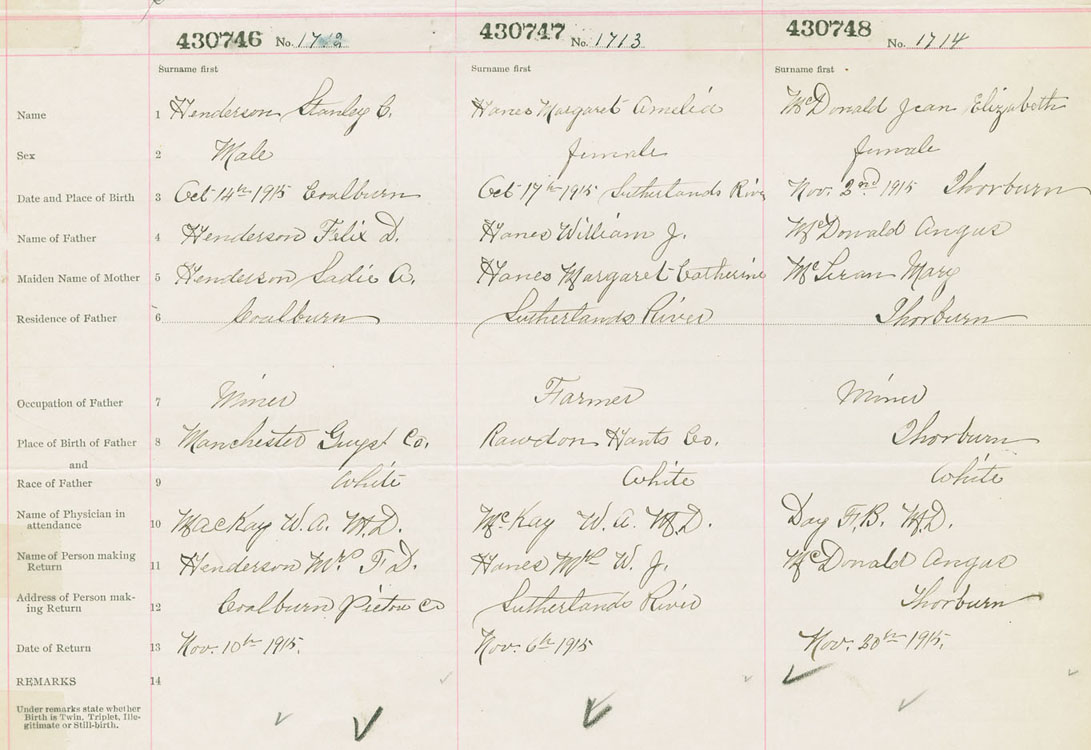 430746 No. 1712 430747 No. 1713 430748 No. 1714
Surname first Surname first Surname first
Name 1 Henderson Stanley C. Hanes Margaret Amelia McDonald Jean Elizabeth
Sex 2 Male female female
Date and Place of Birth 3 Oct 14th 1915 Coalburn Oct 17th 1915 Sutherlands River Nov. 2nd 1915 Thorburn
Name of Father 4 Henderson Felix D. Hanes William J. McDonald Angus
Maiden Name of Mother 5 Henderson Sadie A. Hanes Margaret Catherine Mary
Residence of Father 6 Coalburn Sutherlands River Thorburn
Occupation of Father 7 Miner Farmer Miner
Place of Birth of Father 8 Manchester Guys. Co. Rawdon Hants Co. Thorburn
and
Race of Father 9 White White White
Name of Physician in
attendance 10 MacKay W. A. M.D. McKay W. A. M.D. Day F. B. M.D.
Name of Person making
Return 11 Henderson F. D. Hanes W. J. McDonald Angus
Address of Person mak-
ing Return 12 Coalburn Pictou Co Sutherlands River Thorburn
Date of Return 13 Nov. 10th 1915. Nov. 6th 1915 Nov. 20th 1915.
REMARKS 14
Under remarks state whether
Birth is Twin, Triplet, Ille-
gitimate or Still-birth.